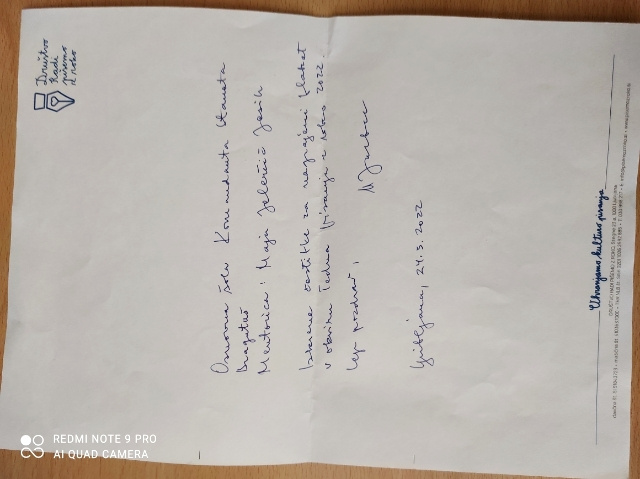 Društvo
Radi
pišemo
z roko
Osnovna šola Komandanta Staneta
Dragatuš
Mentorica: Maja Jelerčič Jesih
Iskrene čestitke za nagrajeni plakat
v okviru Tedna pisanja z roko 2022.
Lep pozdrav,
Ljubljana, 24.5.2022
Ohranjamo kulturo pisanja
REDMI NOTE 9 PRO
AI QUAD CAMERA